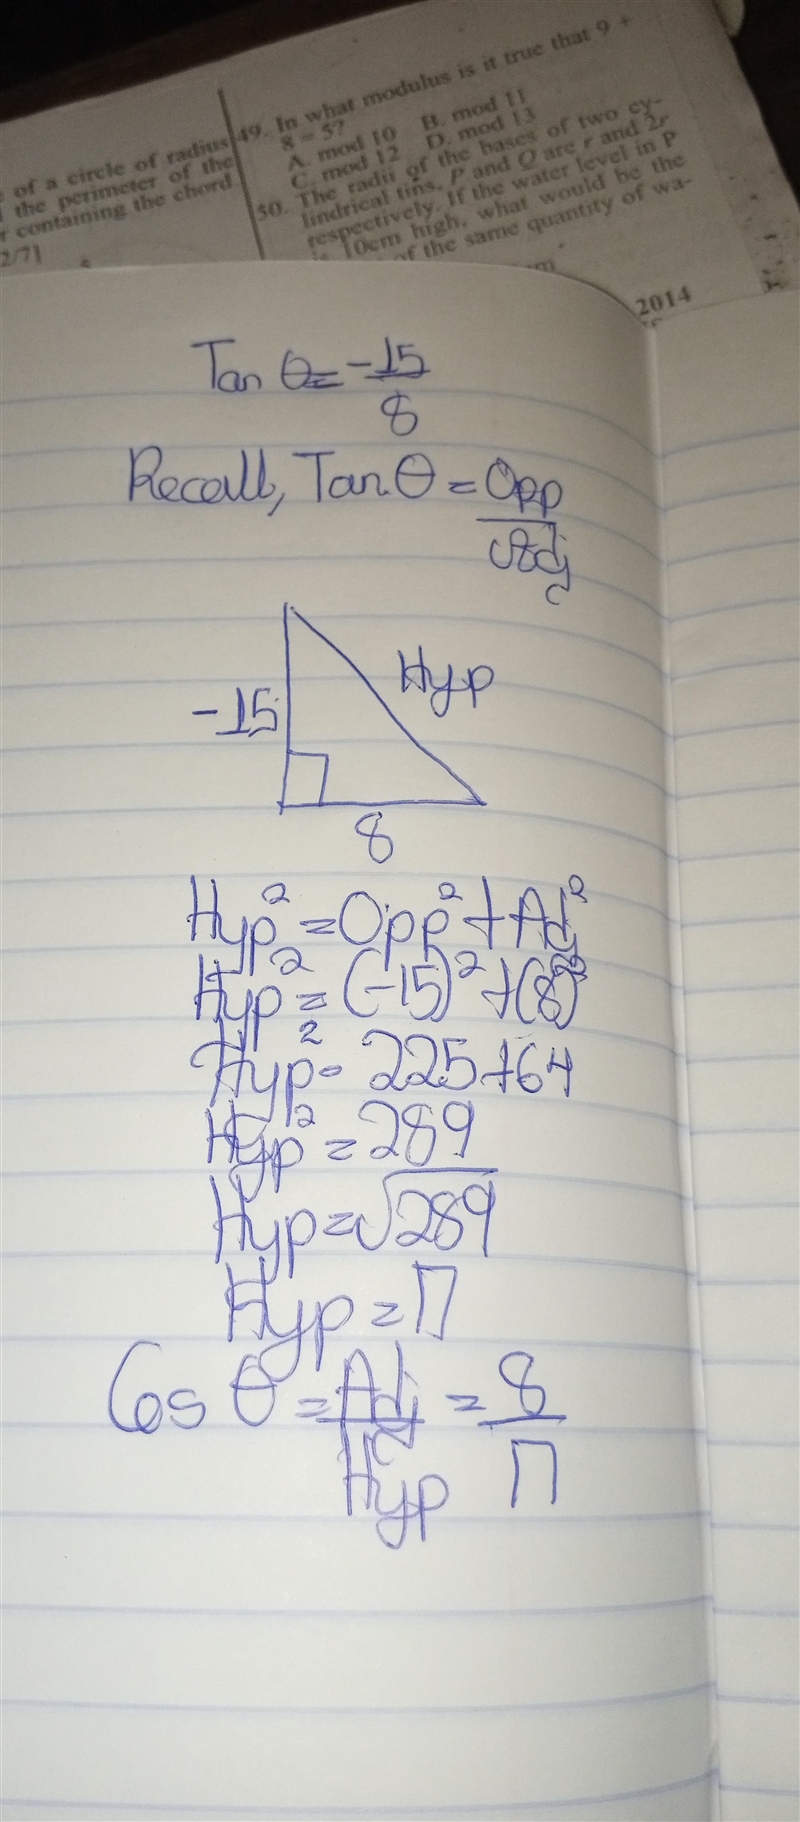 of a circle of radius
the perimeter of the
r containing the chord.
2/7]
49. In what modulus is it true that 9 +
8 = 5?
A. mod 10 B. mod 11
C. mod 12 D. mod 13
50. The radii of the bases of two cy-
lindrical tins, P and Q are r and 2r
respectively. If the water level in P
is 10cm high, what would be the
of the same quantity of wa-
cm
2014
Tan θ = -15/8
Recall, Tan θ = Opp/Adj
-15
Hyp
8
Hyp² = Opp² + Adj²
Hyp² = (-15)² + (8)²
Hyp² = 225 + 64
Hyp² = 289
Hyp = √289
Hyp = 17
Cos θ = Adj/Hyp = 8/17